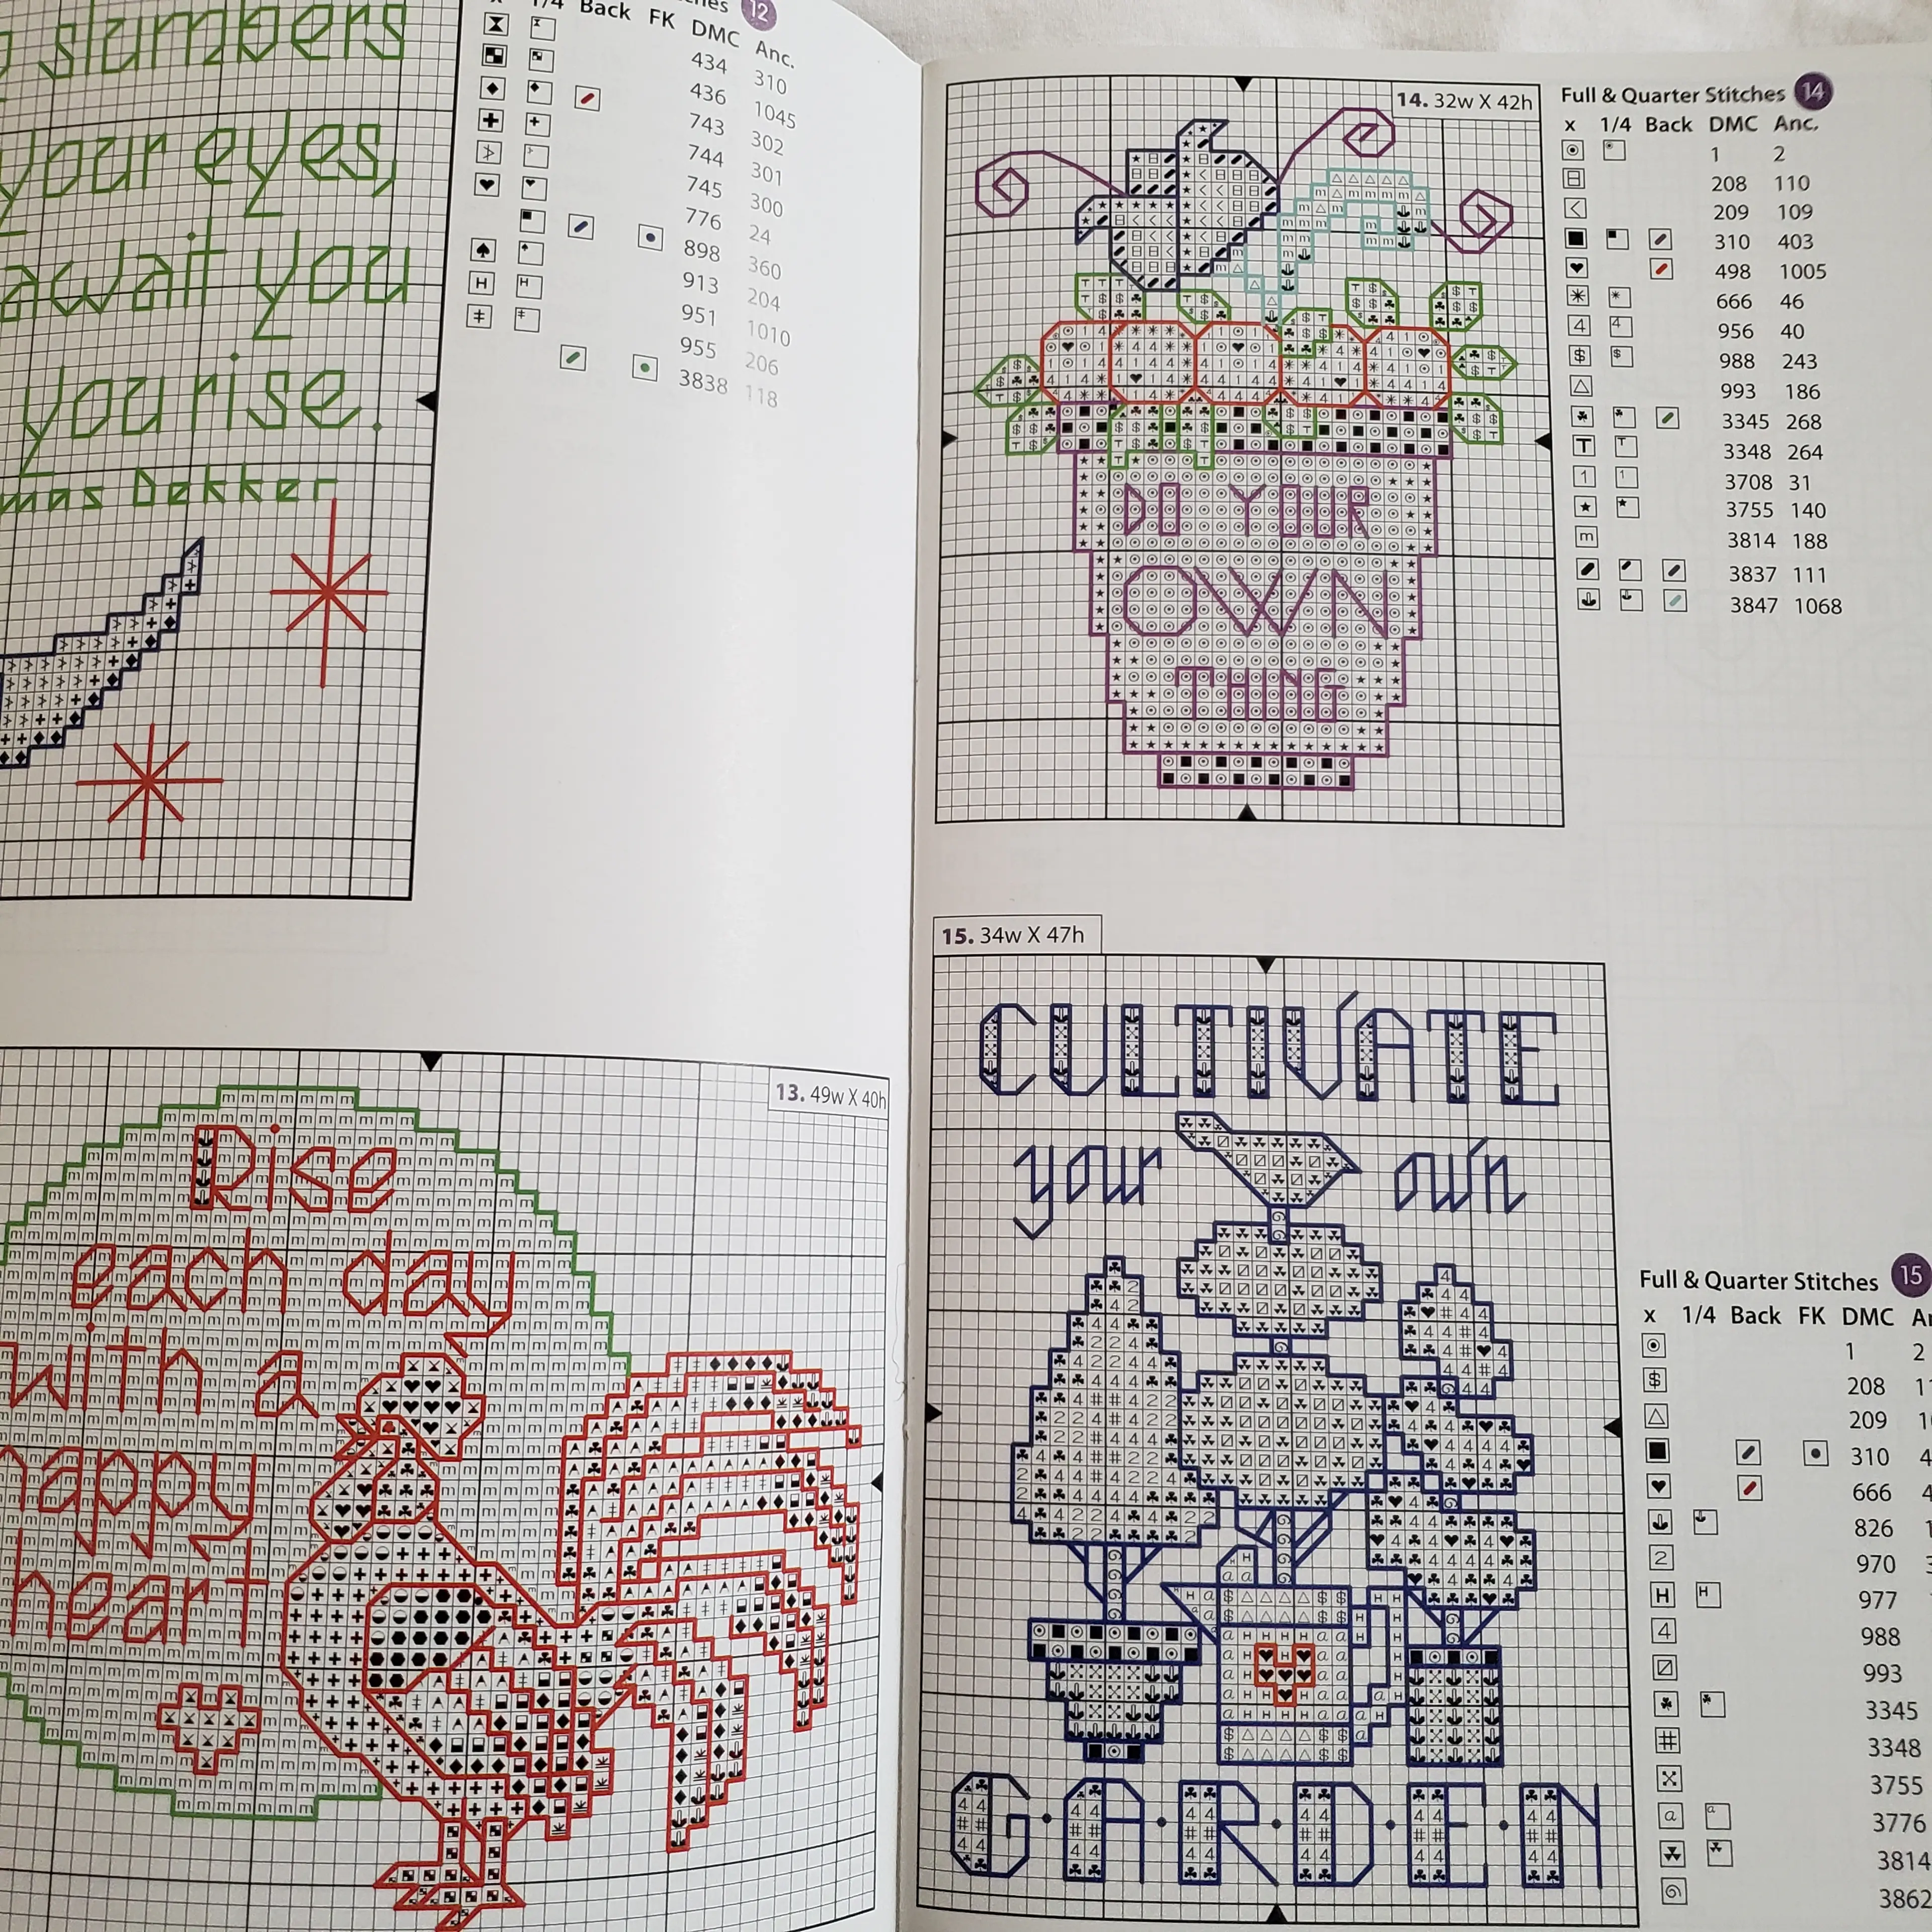 slumbers
your eyes,
await you
you rise.
mas Dekker
12
x 1/4 Back FK DMC Anc.
434 310
436 1045
743 302
744 301
745 300
776 24
898 360
913 204
951 1010
955 206
3838 118
13. 49w X 40h
Rise
each day
with a
happy
heart
14. 32w X 42h
DO YOUR
OWN
THING
Full & Quarter Stitches 14
x 1/4 Back DMC Anc.
1 2
208 110
209 109
310 403
498 1005
666 46
956 40
988 243
993 186
3345 268
3348 264
3708 31
3755 140
3814 188
3837 111
3847 1068
15. 34w X 47h
CULTIVATE
your own
G·A·R·D·E·N
Full & Quarter Stitches 15
x 1/4 Back FK DMC
1 2
208
209
310
666
826
970
977
988
993
3345
3348
3755
3776
3814
3862